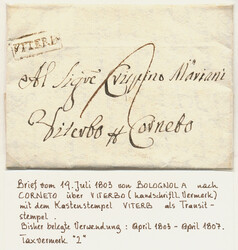 VITERB
Al Sigre Crispino Mariani
2
Viterbo pr Corneto
Brief vom 19. Juli 1803 von BOLOGNOLA nach
CORNETO über VITERBO (handschriftl. Vermerk)
mit dem Kastenstempel VITERB als Transit-
stempel.
Bisher belegte Verwendung: April 1803 - April 1807.
Taxvermerk "2"